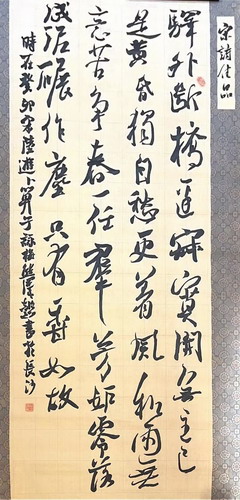 宋詩佳品
驛外斷橋邊寂寞開無主已
是黃昏獨自愁更著風和雨無
意苦爭春一任羣芳妒零落
成泥碾作塵只有香如故
時在癸卯陸游卜算子詠梅書於長沙